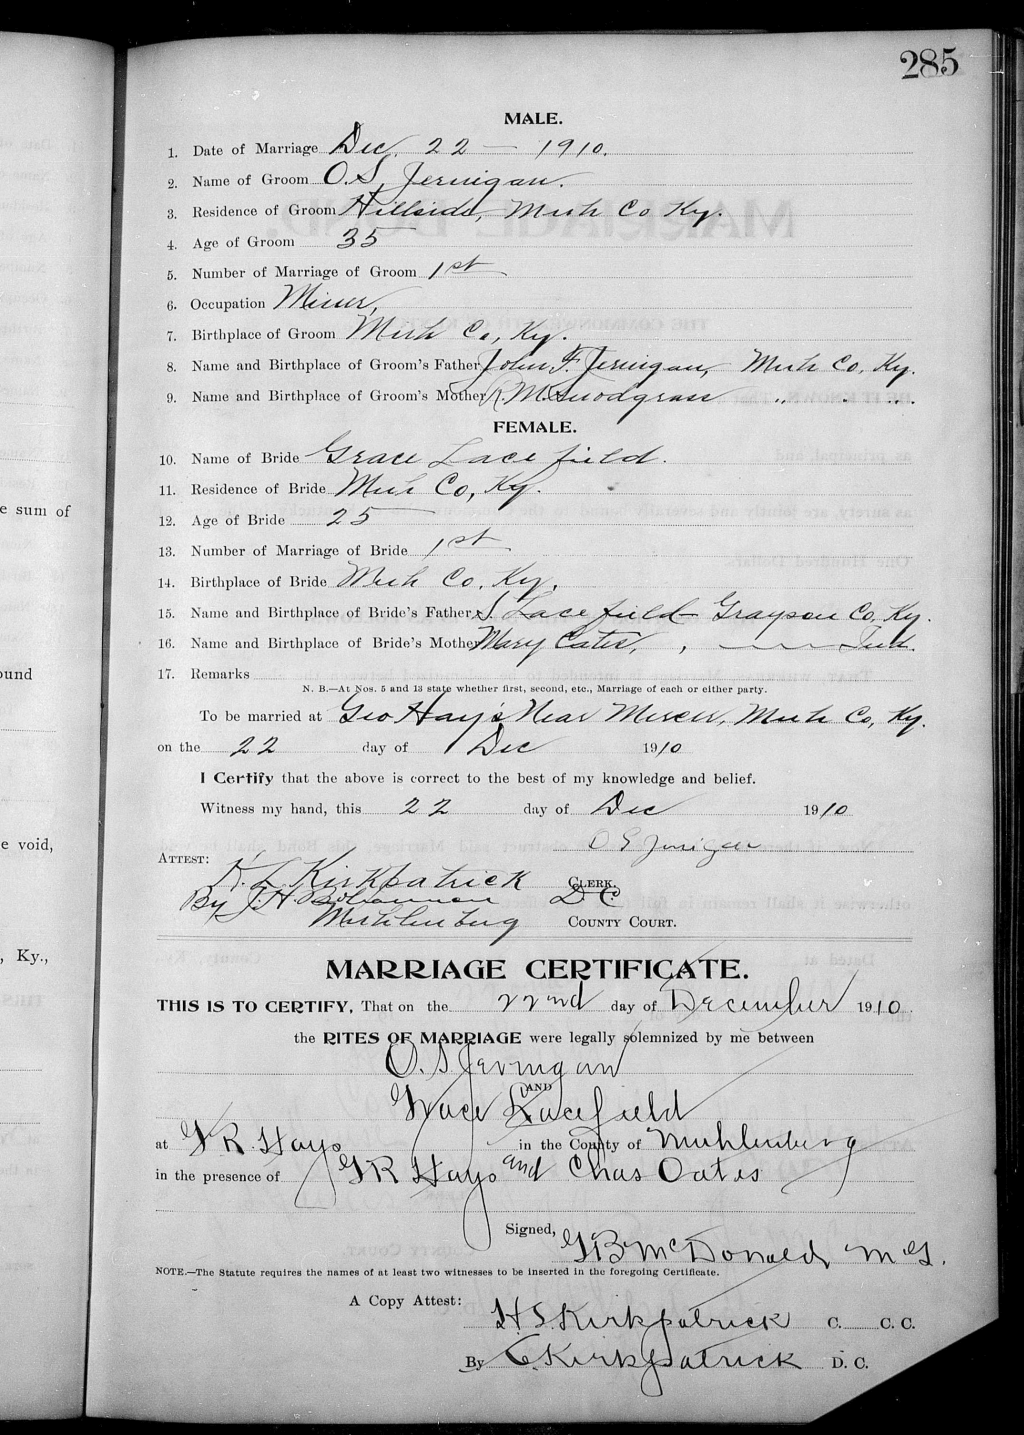 285
MALE.
1. Date of Marriage Dec. 22 — 1910.
2. Name of Groom O.S. Jernigan.
3. Residence of Groom Hillside, Muh Co Ky.
4. Age of Groom 35
5. Number of Marriage of Groom 1st
6. Occupation Miner,
7. Birthplace of Groom Muh Co, Ky.
8. Name and Birthplace of Groom's Father John F. Jernigan, Muh Co, Ky.
9. Name and Birthplace of Groom's Mother R. M. Snodgrass " " "
FEMALE.
10. Name of Bride Grace Lacefield.
11. Residence of Bride Muh Co, Ky.
12. Age of Bride 25
13. Number of Marriage of Bride 1st
14. Birthplace of Bride Muh Co, Ky.
15. Name and Birthplace of Bride's Father S. Lacefield Grayson Co, Ky.
16. Name and Birthplace of Bride's Mother Mary Cates,
17. Remarks
N. B.—At Nos. 5 and 13 state whether first, second, etc., Marriage of each or either party.
To be married at Geo Hay's Near Mercer, Muh Co, Ky.
on the 22 day of Dec 1910
I Certify that the above is correct to the best of my knowledge and belief.
Witness my hand, this 22 day of Dec 1910
O S Jernigan
ATTEST:
Kirkpatrick CLERK.
By J. H. Bohannon D C.
Muhlenburg COUNTY COURT.
MARRIAGE CERTIFICATE.
THIS IS TO CERTIFY, That on the 22nd day of December 1910.
the RITES OF MARRIAGE were legally solemnized by me between
O. S. Jernigan
AND
Grace Lacefield
at G R Hays in the County of Muhlenberg
in the presence of G R Hays and Chas Oates
Signed,
G B McDonald M G.
NOTE.—The Statute requires the names of at least two witnesses to be inserted in the foregoing Certificate.
A Copy Attest:
Kirkpatrick C. C. C.
By C. Kirkpatrick D. C.
e sum of
ound
e void,
, Ky.,